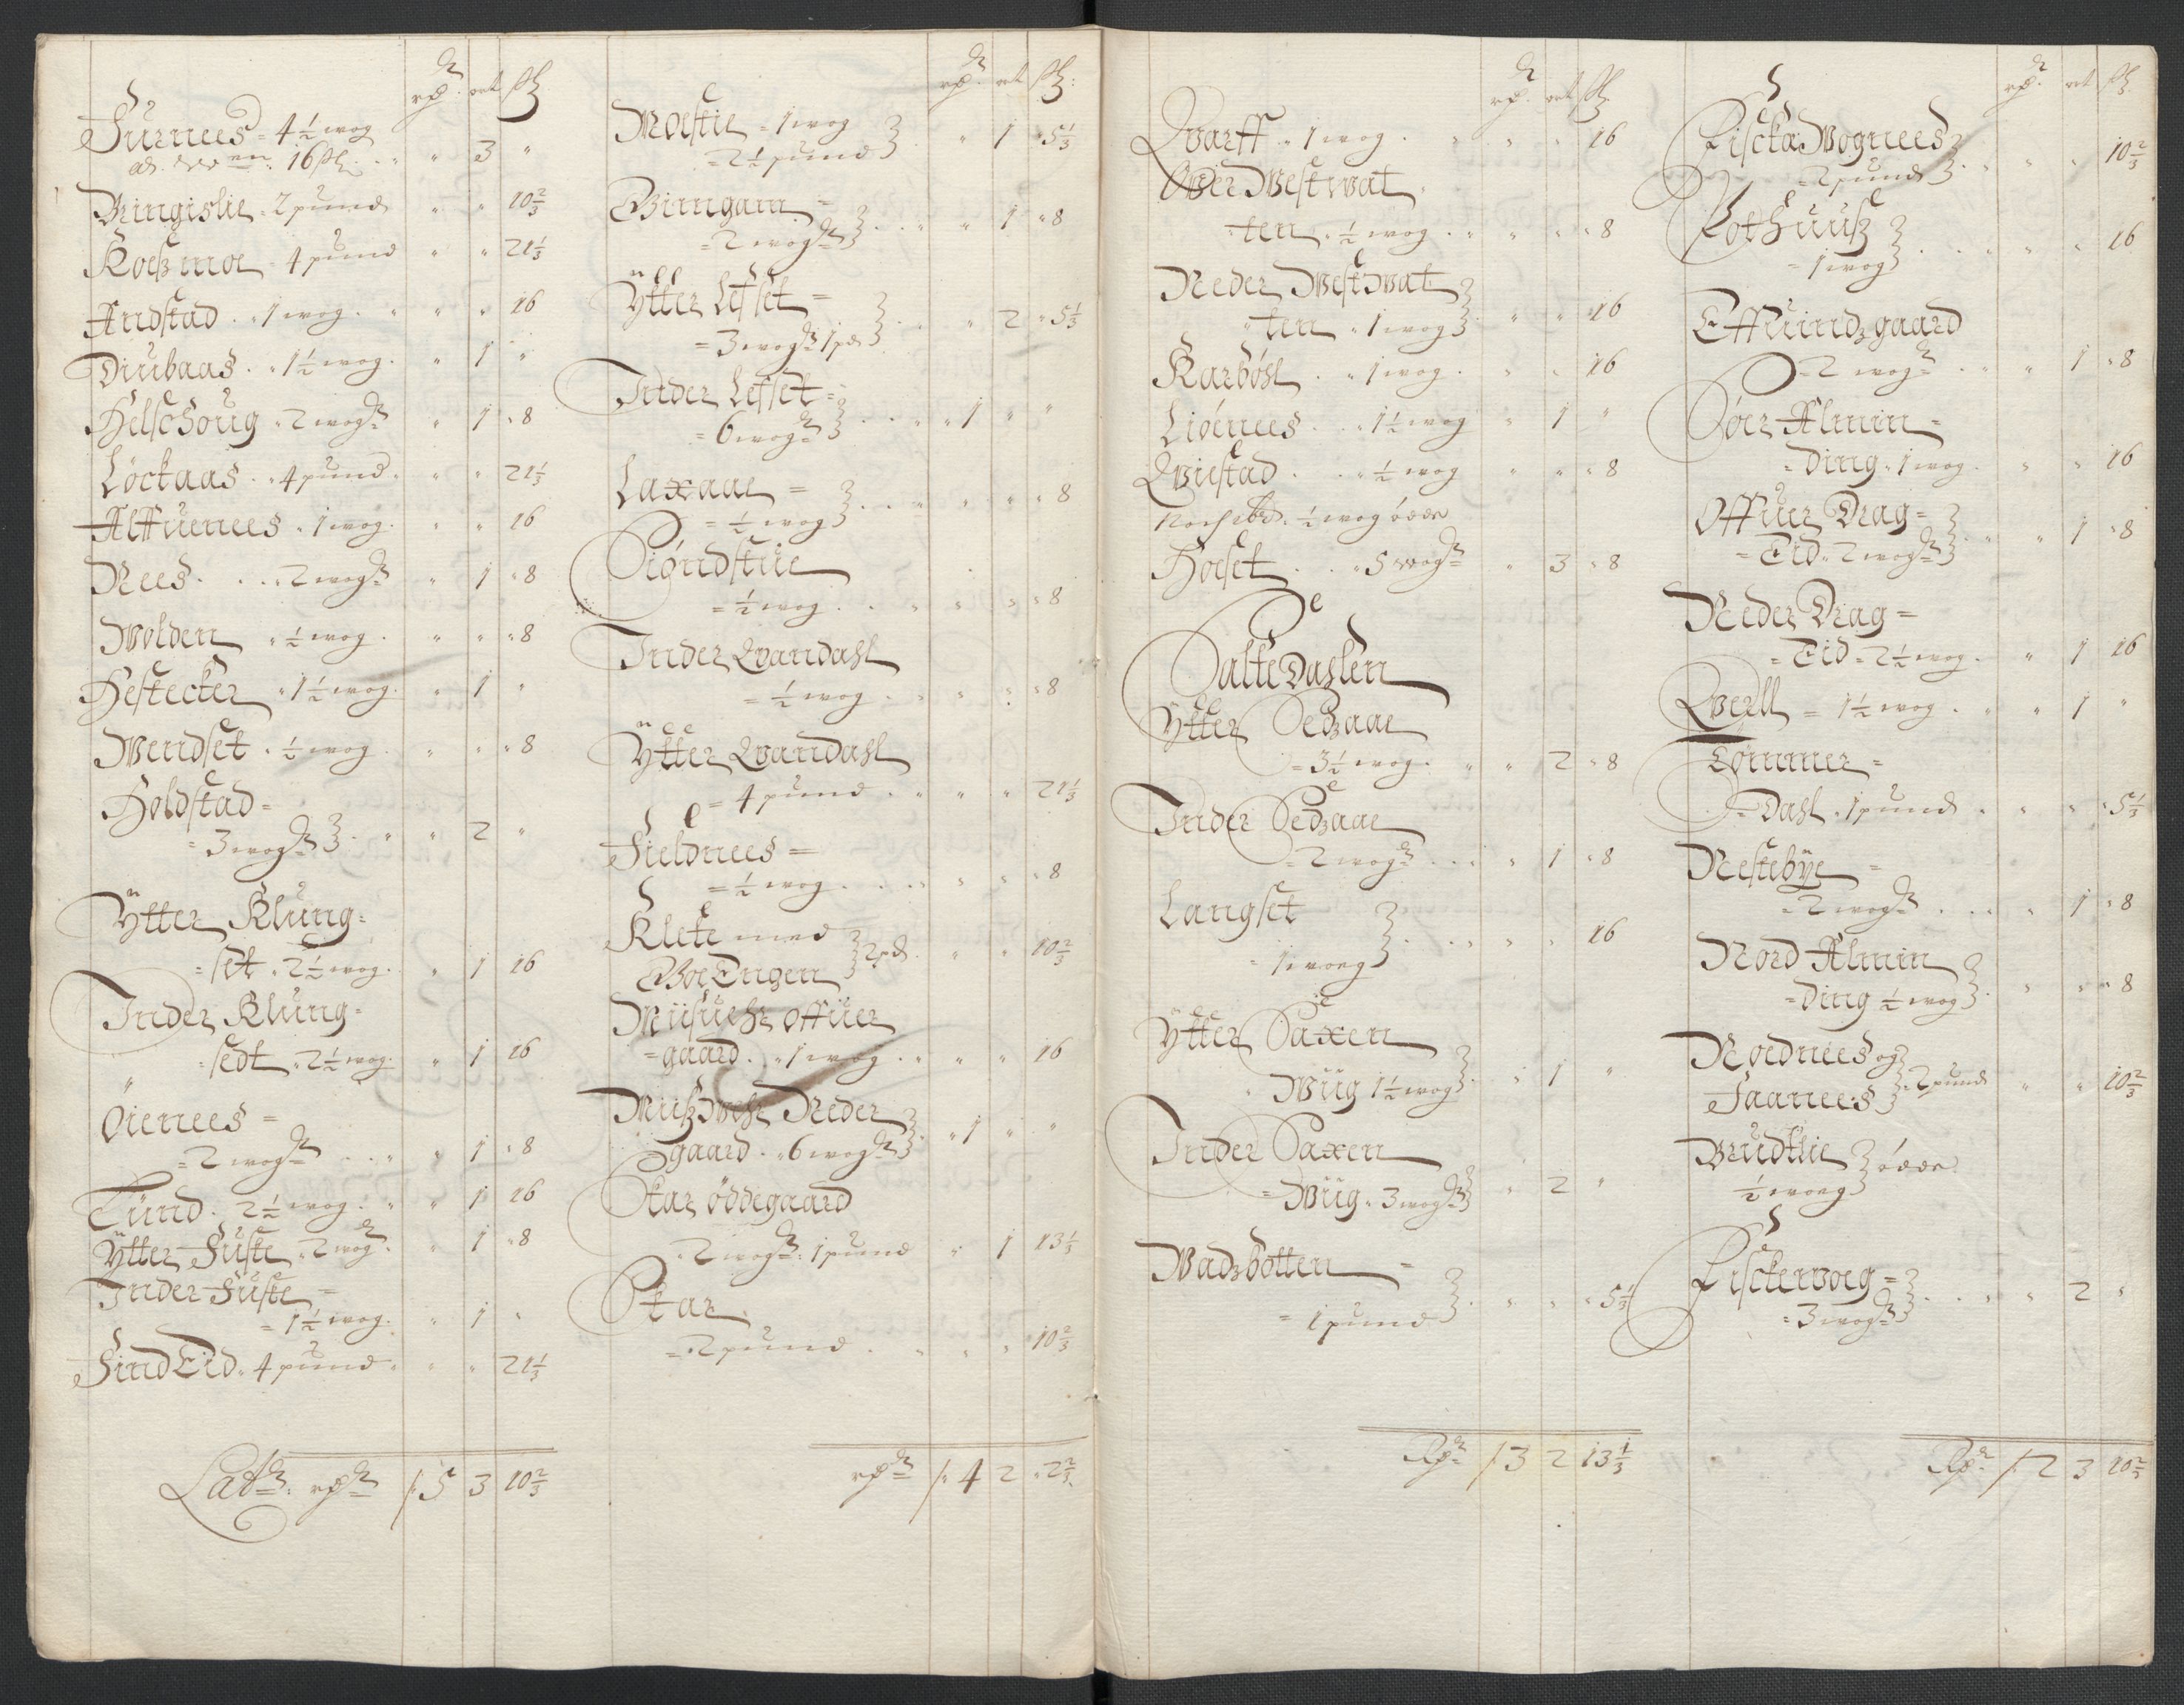 rdr ort sk
Furnees = 4½ wog
3 "
Bringislie = 2 pund " " 10⅔
Koesmoe = 4 pund " " 21⅓
Andstad . 1 wog . " " 16
Diubaas . 1½ wog . " 1 "
Helschoug . 2 wogr " 1 8
Löckaas . 4 pund . " " 21⅓
Alffuenees . 1 wog . " " 16
Nees . . . 2 wogr " 1 8
Wolden . ½ wog . " " 8
Hestecker . 1½ wog . " 1 "
Wendset . ½ wog . " " 8
Holdstad =
= 3 wogr . " 2 "
Ÿtter Klung=
=set . 2½ wog . " 1 16
Inder Klung=
=sedt . 2½ wog . " 1 16
Öienees =
= 2 wogr . . " 1 8
Tund . 2½ wog . " 1 16
Ÿtter Fuste . 2 wogr . " 1 8
Inder Fuste =
= 1½ wog . " 1 "
Find Eid . 4 pund . " " 21⅓
Latr: rdr /: 5 3 10⅔
rdr ort sk:
Moestie = 1 wog
= 2½ pund " 1 5⅓
Bimgam =
= 2 wogr . . " 1 8
Ÿtter Lefset =
= 3 wogr 1 pd . " 2 5⅓
Inder Lefset =
= 6 wogr . . 1 " "
Laxaae =
= ½ wog . . " " 8
Siöndstue
= ½ wog . . " " 8
Inder Qvandahl
= ½ wog . " " 8
Ÿtter Qvandahl
= 4 pund . " " 21⅓
Fieldnees =
= ½ wog . . " " 8
Klete med
Boe Engen 2 pd . " " 10⅔
Miisuehr Offuer
=gaard . 1 wog . " " 16
Miiswehr Neder
gaard . 6 wogr . 1 " "
Skar öddegaard
. 2 wogr: 1 pund " 1 13⅓
Skar .
= 2 pund . " " 10⅔
rdr /: 4 2 2⅔
rdr ort sk
Qvarff . 1 wog . " " 16
Over Westwat
=ten . ½ wog . " " 8
Neder Westwat
ten . 1 wog . " " 16
Karböhl . 1 wog . " " 16
Liöenees . . 1½ wog " 1 "
Qviestad . . ½ wog " " 8
Noch ibd. ½ wog ödde
Hoeset . . 5 wogr " 3 8
Saltedahlen
Ÿtter Sedzaae
= 3½ wog . " 2 8
Inder Sedzaae
= 2 wogr . . " 1 8
Langset
= 1 woeg . . " " 16
Ÿtter Saxen
Wiig 1½ wog . " 1 "
Inder Saxen
= Wiig . 3 wogr " 2 "
Wadzbotten =
= 1 pund . " " 5⅓
Rdr /: 3 2 13⅓
rdr ort sk
Fiscka Wognees
= 2 pund . " " 10⅔
Rothuuss
= 1 wog . . " " 16
Effuindzgaard
= 2 wogr . " 1 8
Söer Almin=
=ding . 1 wog . " " 16
Offuer Drag=
=Eid . 2 wogr . " 1 8
Neder Drag=
=Eid = 2½ wog . " 1 16
Qverll = 1½ wog . " 1 "
Tömmer=
=Dahl . 1 pund . " " 5⅓
Nestebÿe =
= 2 wogr . . " 1 8
Nord Almin
=ding ½ wog . " " 8
Noednees og
Saanees = 2 pund " " 10⅔
Brudtlie ödde
½ woeg
Fisckewoeg =
= 3 wogr . . " 2 "
Rdr /: 2 3 10⅔